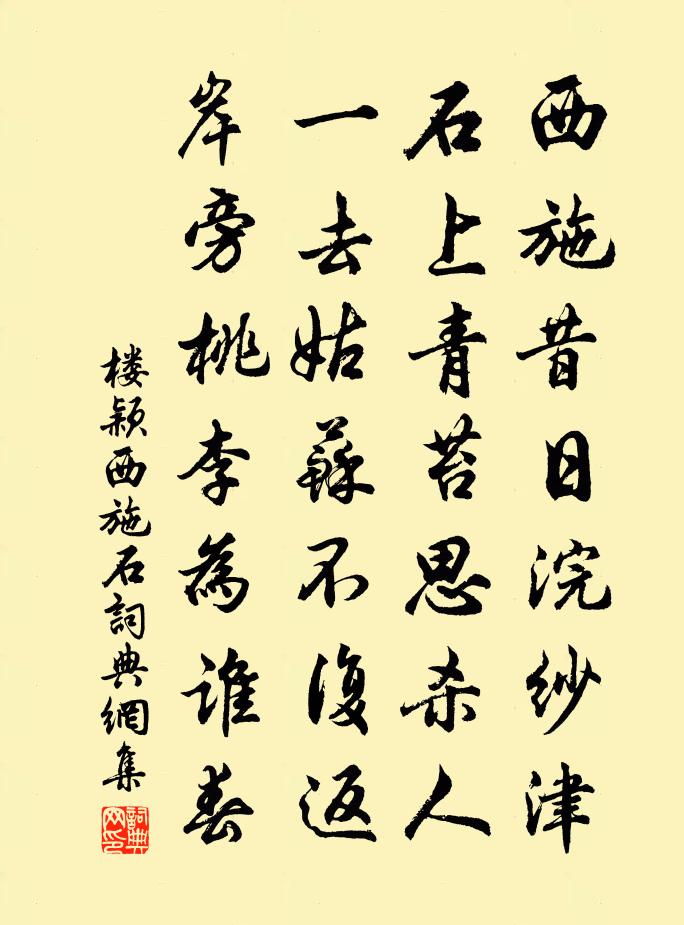 西施昔日浣紗津
石上青苔思杀人
一去姑蘇不復返
岸旁桃李為誰春
楼颖西施石詞典網集
詞典网印